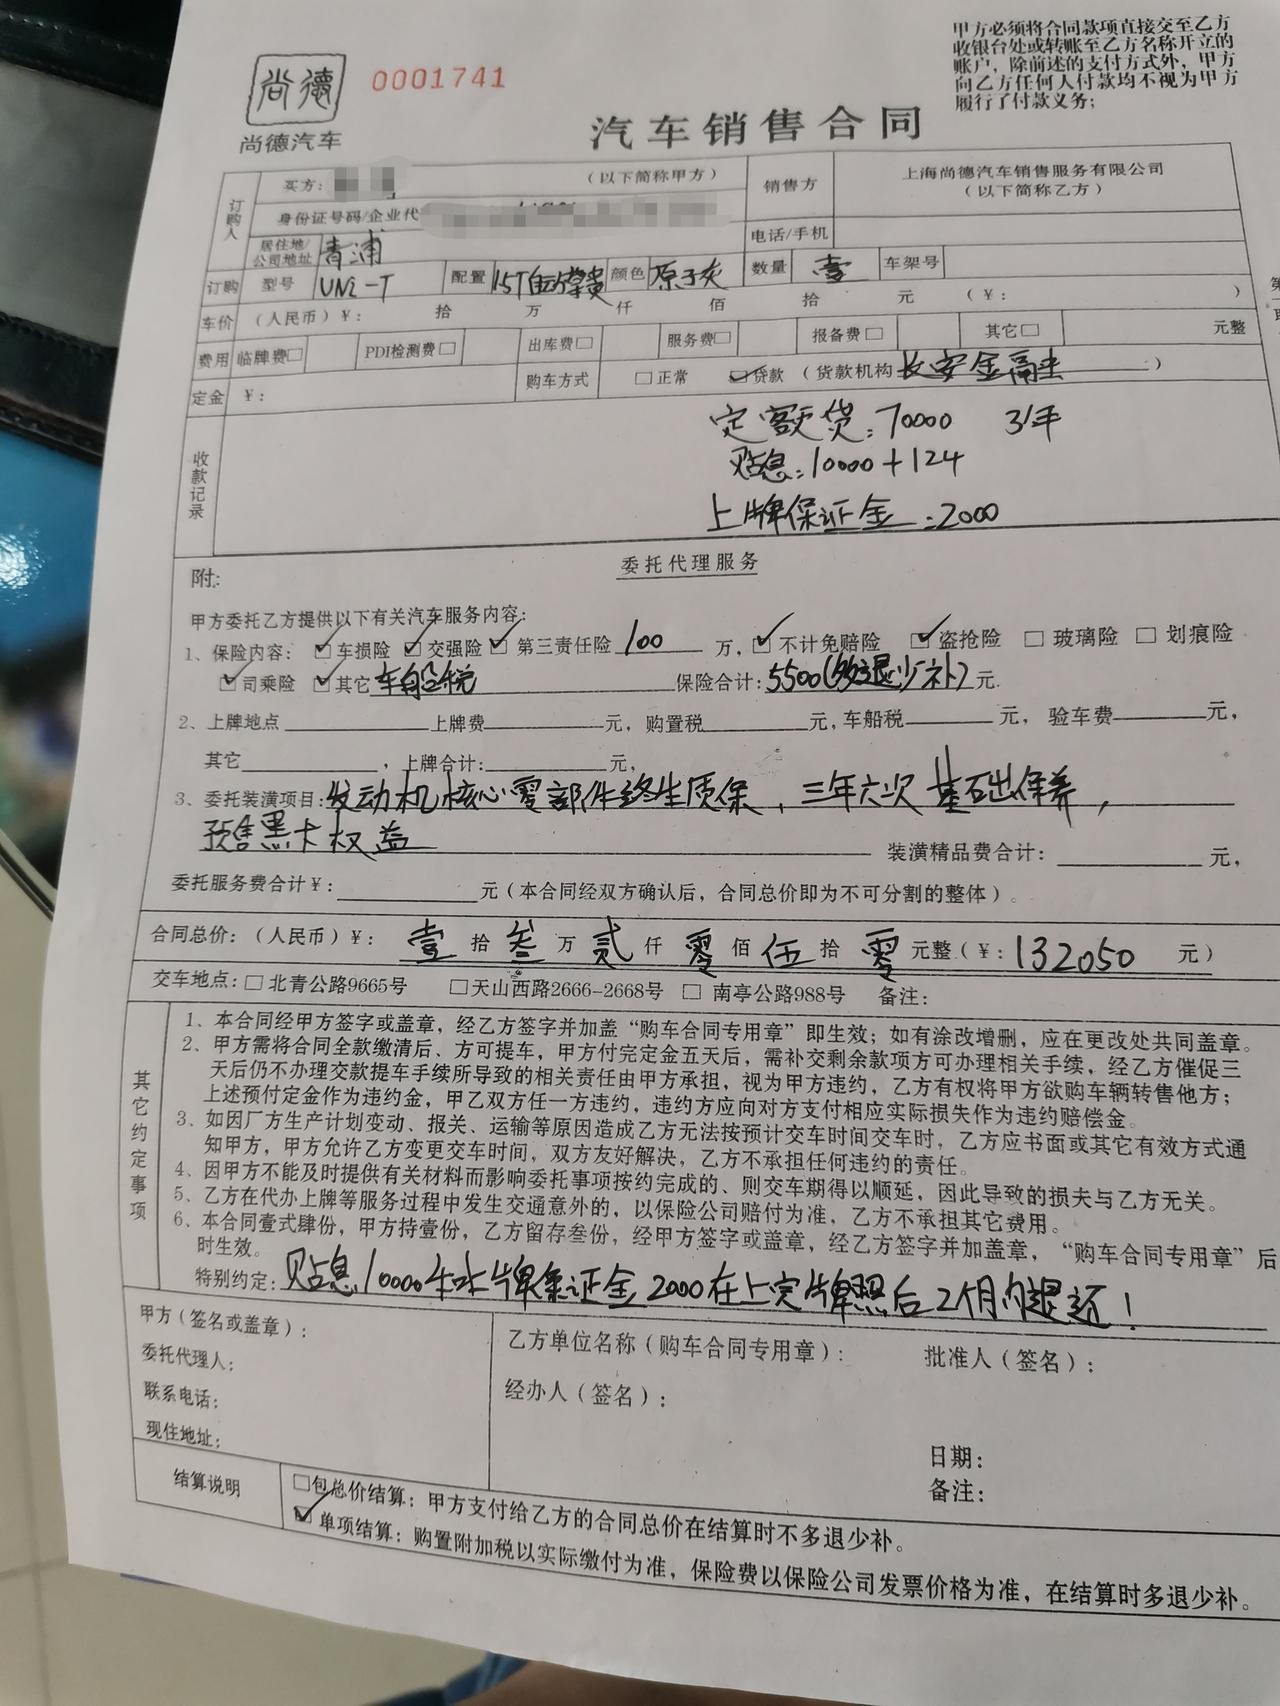 甲方必须将合同款项直接交至乙方
收银台处或转账至乙方名称开立的
账户，除前述的支付方式外，甲方
向乙方任何人付款均不视为甲方
履行了付款义务；
尚德
尚德汽车
0001741
汽车销售合同
订购人
买方：（以下简称甲方）
销售方
上海尚德汽车销售服务有限公司
（以下简称乙方）
身份证号码/企业代
电话/手机
居住地/
公司地址
青浦
订购 型号 UNi-T 配置 颜色 原子灰 数量 壹 车架号
车价 （人民币）￥： 拾 万 仟 佰 拾 元 （￥： ）
费用 临牌费□ PDI检测费□ 出库费□ 服务费□ 报备费□ 其它□ 元整
定金 ￥： 购车方式 □正常 ☑贷款 （贷款机构 长安金融 ）
收款记录
定额贷：70000 3年
贴息：10000+124
上牌保证金：2000
附： 委托代理服务
甲方委托乙方提供以下有关汽车服务内容：
1、保险内容：☑车损险 ☑交强险 ☑第三责任险 100 万，☑不计免赔险 ☑盗抢险 □玻璃险 □划痕险
☑司乘险 ☑其它 车船税 保险合计：5500（多退少补）元.
2、上牌地点 上牌费 元，购置税 元，车船税 元，验车费 元，
其它 ，上牌合计： 元，
3、委托装潢项目：发动机核心零部件终生质保，三年六次基础保养，
预售黑卡权益 装潢精品费合计： 元，
委托服务费合计￥： 元（本合同经双方确认后，合同总价即为不可分割的整体）。
合同总价：（人民币）￥： 壹 拾 叁 万 贰 仟 零 佰 伍 拾 零 元整（￥：132050 元）
交车地点：□北青公路9665号 □天山西路2666-2668号 □南亭公路988号 备注：
其它约定事项
1、本合同经甲方签字或盖章，经乙方签字并加盖“购车合同专用章”即生效；如有涂改增删，应在更改处共同盖章。
2、甲方需将合同全款缴清后、方可提车，甲方付完定金五天后，需补交剩余款项方可办理相关手续，经乙方催促三
天后仍不办理交款提车手续所导致的相关责任由甲方承担，视为甲方违约，乙方有权将甲方欲购车辆转售他方；
上述预付定金作为违约金，甲乙双方任一方违约，违约方应向对方支付相应实际损失作为违约赔偿金。
3、如因厂方生产计划变动、报关、运输等原因造成乙方无法按预计交车时间交车时，乙方应书面或其它有效方式通
知甲方，甲方允许乙方变更交车时间，双方友好解决，乙方不承担任何违约的责任。
4、因甲方不能及时提供有关材料而影响委托事项按约完成的、则交车期得以顺延，因此导致的损失与乙方无关。
5、乙方在代办上牌等服务过程中发生交通意外的，以保险公司赔付为准，乙方不承担其它费用。
6、本合同壹式肆份，甲方持壹份，乙方留存叁份，经甲方签字或盖章，经乙方签字并加盖章，“购车合同专用章”后
时生效。
特别约定：贴息10000和上牌保证金2000在上完牌照后2个月内退还！
甲方（签名或盖章）：
委托代理人：
联系电话：
现住地址：
乙方单位名称（购车合同专用章）： 批准人（签名）：
经办人（签名）：
日期：
备注：
结算说明
□包总价结算：甲方支付给乙方的合同总价在结算时不多退少补。
☑单项结算：购置附加税以实际缴付为准，保险费以保险公司发票价格为准，在结算时多退少补。